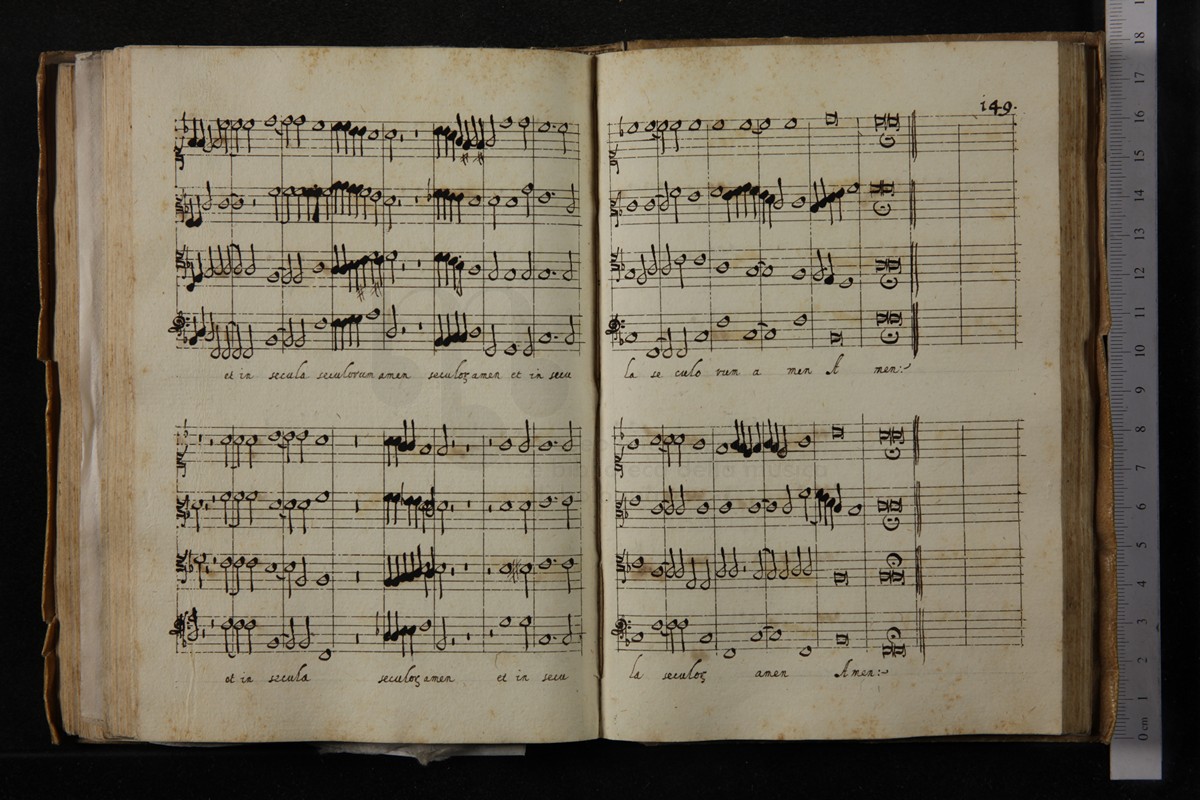 149.
et in secula seculorum amen seculoꝝ amen et in secu
la se culo rum a men A men:~
et in secula seculoꝝ amen et in secu
la seculoꝝ amen Amen:~
18
17
16
15
14
13
12
11
10
9
8
7
6
5
4
3
2
1
0 cm